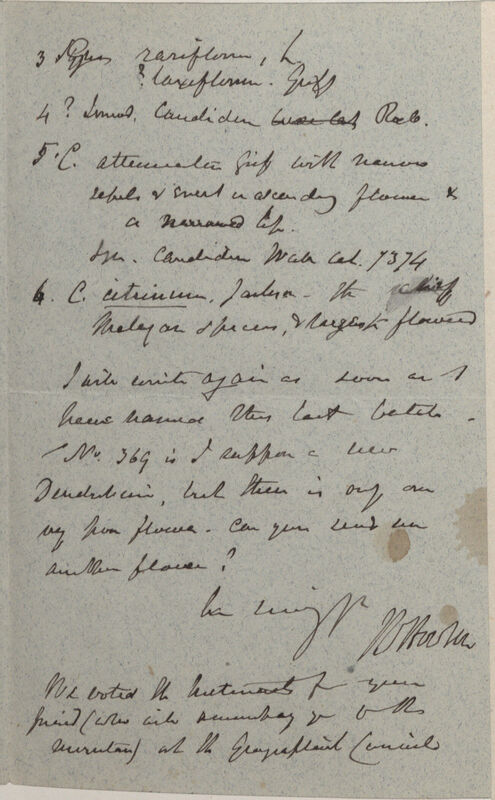 3 rariflorum, L
? laxiflorum. Griff
4 ? candidum Roxb.
5. C. attenuatum Griff with narrow
sepals & erect or ascending flower &
a narrowed lip.
Syn. candidum Wall cat. 7374
6. C. citrinum, Jackson - the chief
Malayan species, & largest flowered
I will write again as soon as I
have named this last batch -
No. 369 is I suppose a new
Dendrobium, but there is only one
very poor flower - can you send me
another flower?
Ever sincerely yrs
JD Hooker
We voted the instruments for your
friend (who will accompany you to the
mountain) at the Geographical Council